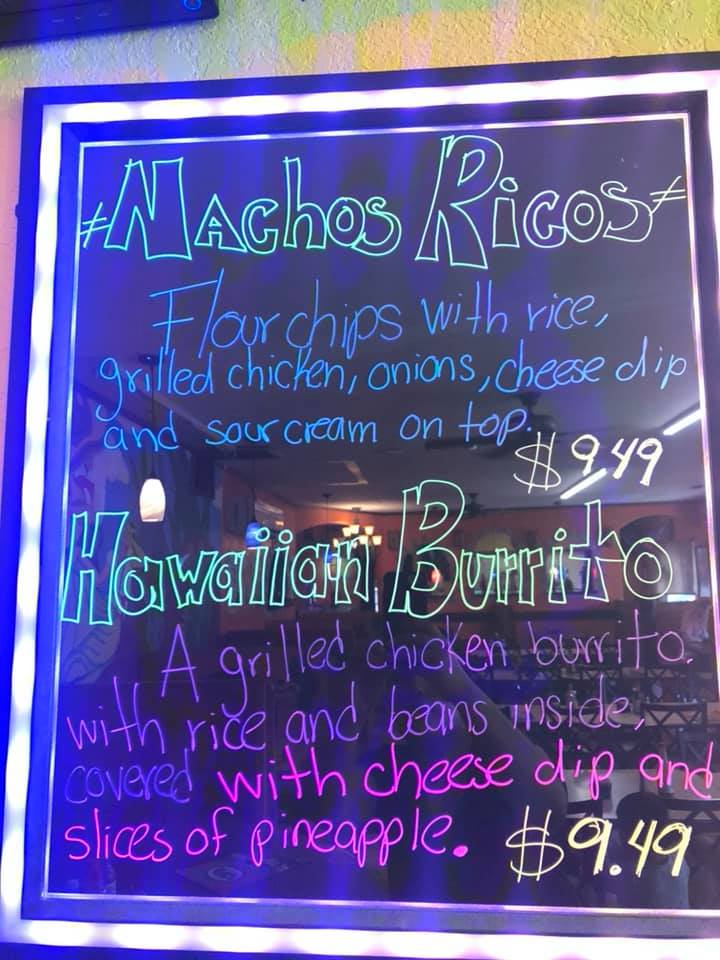 ≠Nachos Ricos≠
Flour chips with rice,
grilled chicken, onions, cheese dip
and sour cream on top.
$9.49
Hawaiian Burrito
A grilled chicken burrito.
with rice and beans inside,
covered with cheese dip and
slices of pineapple. $9.49